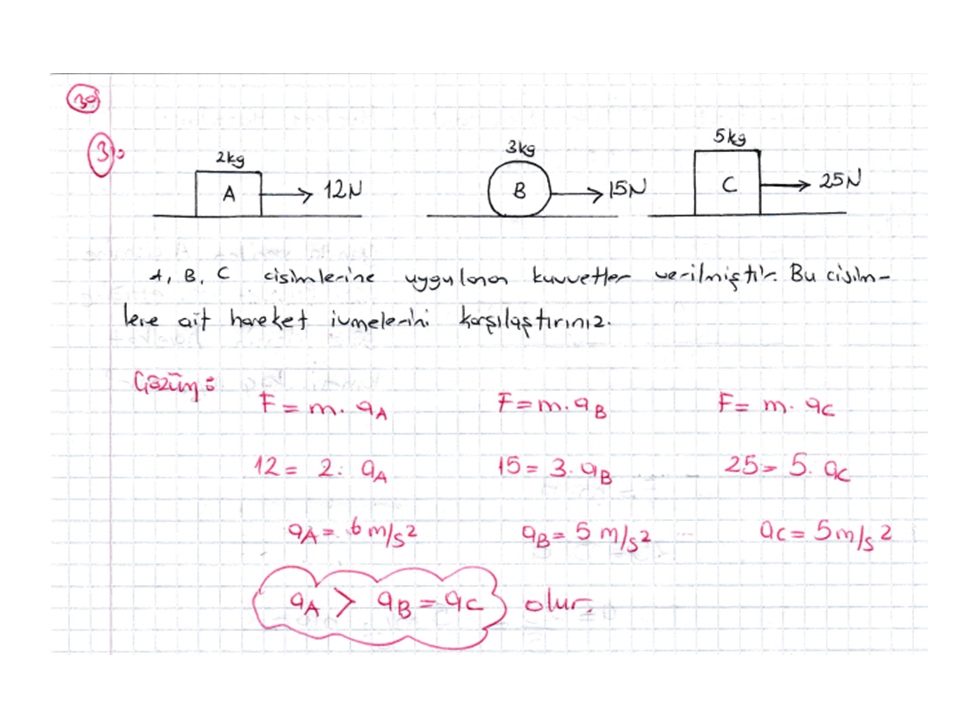 3)
2kg 3kg 5kg
A 12N B 15N C 25N
A, B, C cisimlerine uygulanan kuvvetler verilmiştir. Bu cisim-
lere ait hareket ivmelerini karşılaştırınız.
Çözüm:
F = m. aA F = m. aB F = m. aC
12 = 2. aA 15 = 3. aB 25 = 5. aC
aA = 6 m/s2 aB = 5 m/s2 aC = 5 m/s2
aA > aB = aC olur.